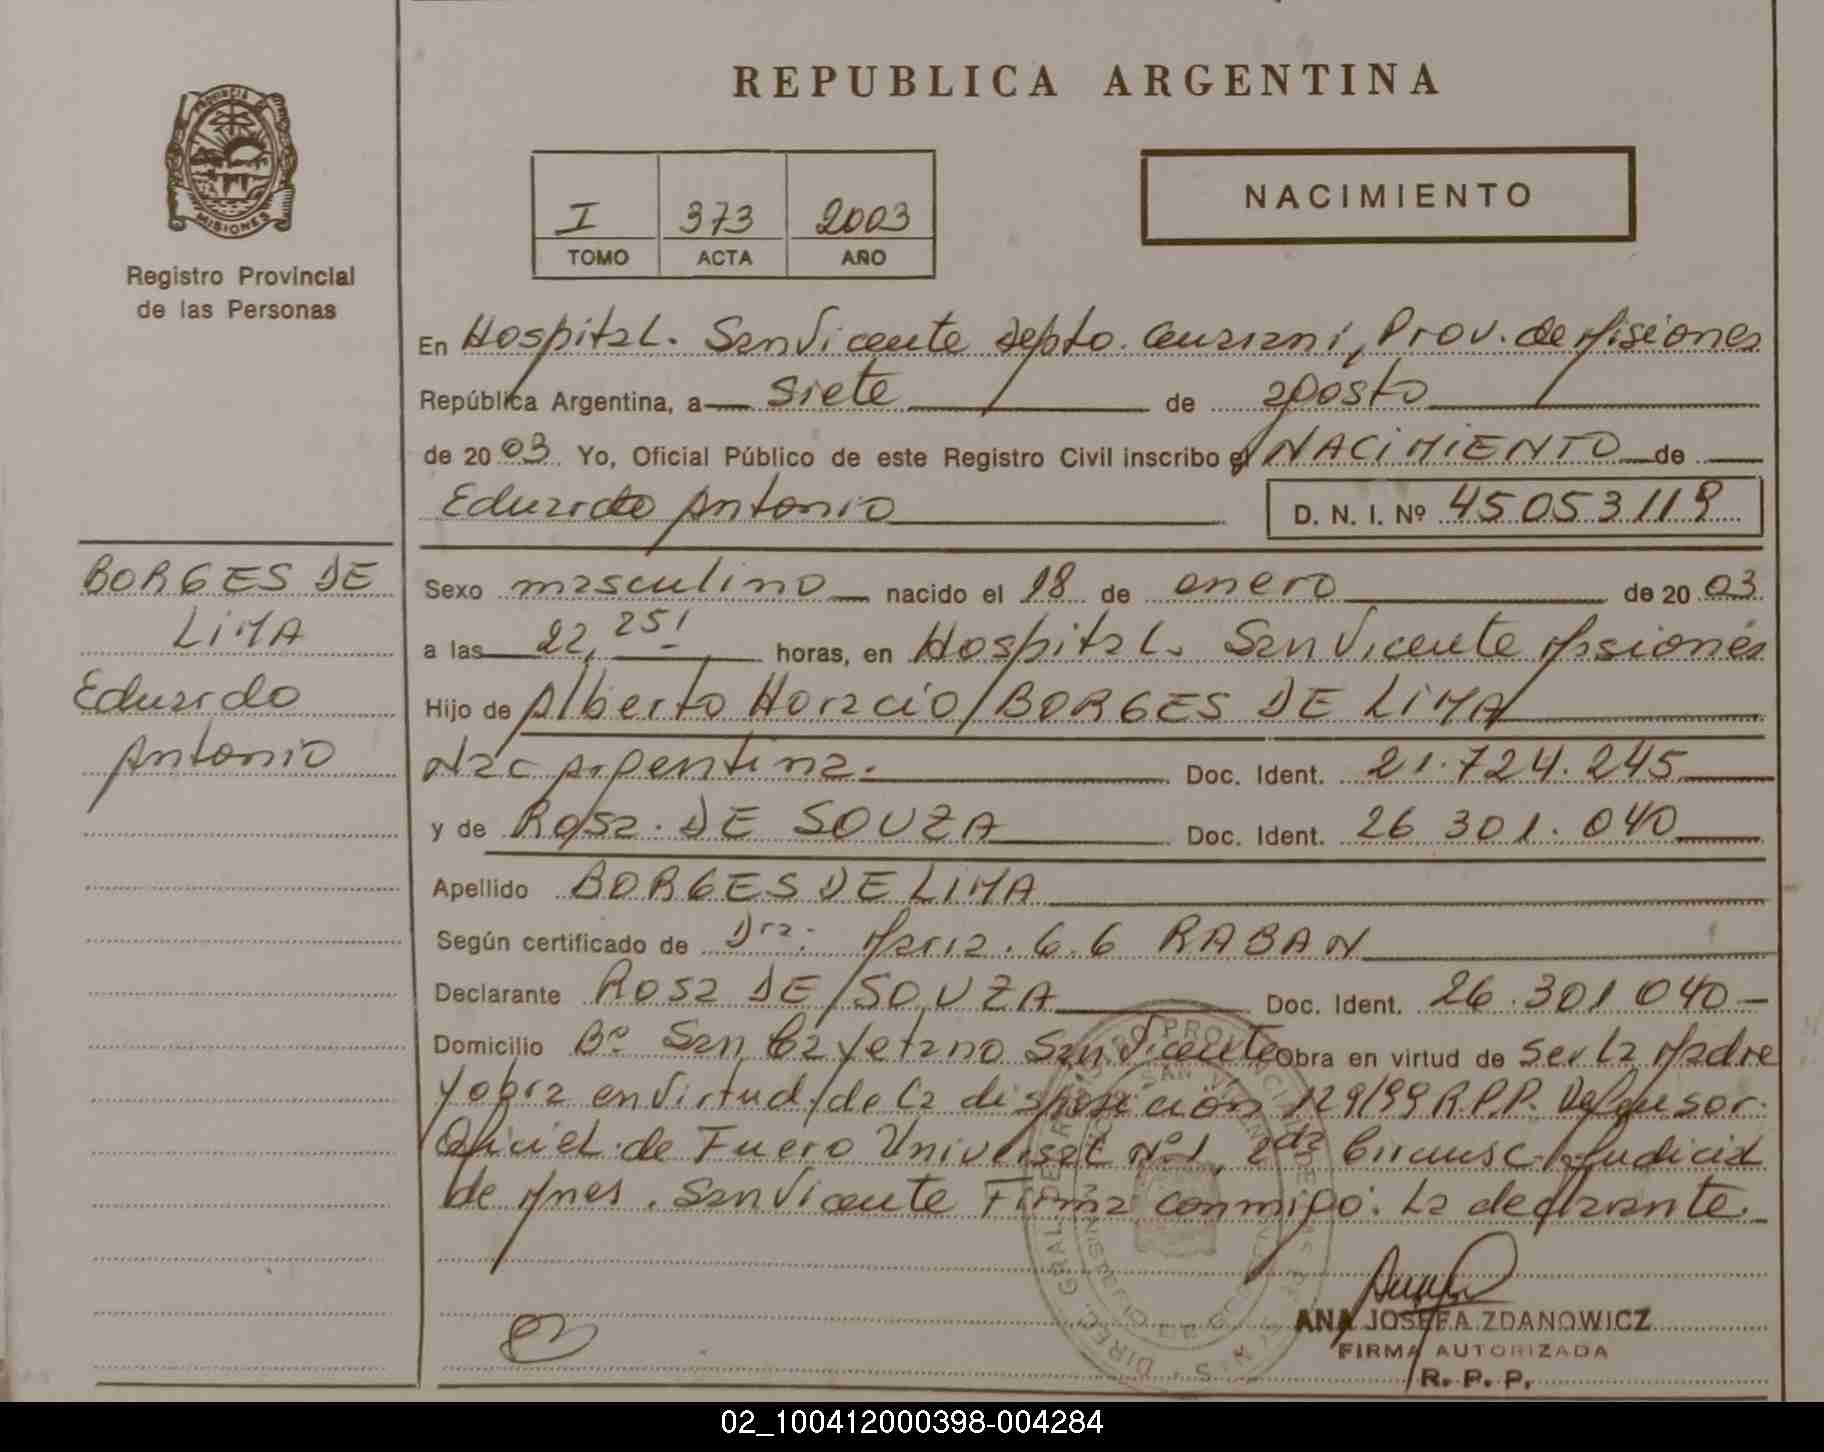 REPUBLICA ARGENTINA
PROVINCIA DE
MISIONES
Registro Provincial
de las Personas
I 373 2003
TOMO ACTA AÑO
NACIMIENTO
En Hospital. San Vicente Depto. Guarani, Prov. de Misiones
República Argentina, a siete de agosto
de 2003 Yo, Oficial Público de este Registro Civil inscribo el NACIMIENTO de
Eduardo Antonio D. N. I. Nº 45053119
BORGES DE
LIMA
Eduardo
Antonio
Sexo masculino nacido el 18 de enero de 2003
a las 22, 25' horas, en Hospital. San Vicente Misiones
Hijo de Alberto Horacio BORGES DE LIMA
Nac Argentina. Doc. Ident. 21.724.245
y de Rosa. DE SOUZA Doc. Ident. 26 301. 040
Apellido BORGES DE LIMA
Según certificado de Dra: Maria. G. G RABAN
Declarante Rosa DE SOUZA Doc. Ident. 26.301 040-
Domicilio Bº San Cayetano San Vicente Obra en virtud de ser la Madre
y obra en virtud de la disposicion 129/99 R.P.P. Defensor.
Oficial de Fuero Universal Nº1, 2da Circunsc. Judicial
de Mnes. San Vicente Firma conmigo: La declarante.
ANA JOSEFA ZDANOWICZ
FIRMA AUTORIZADA
R. P. P.
02_100412000398-004284